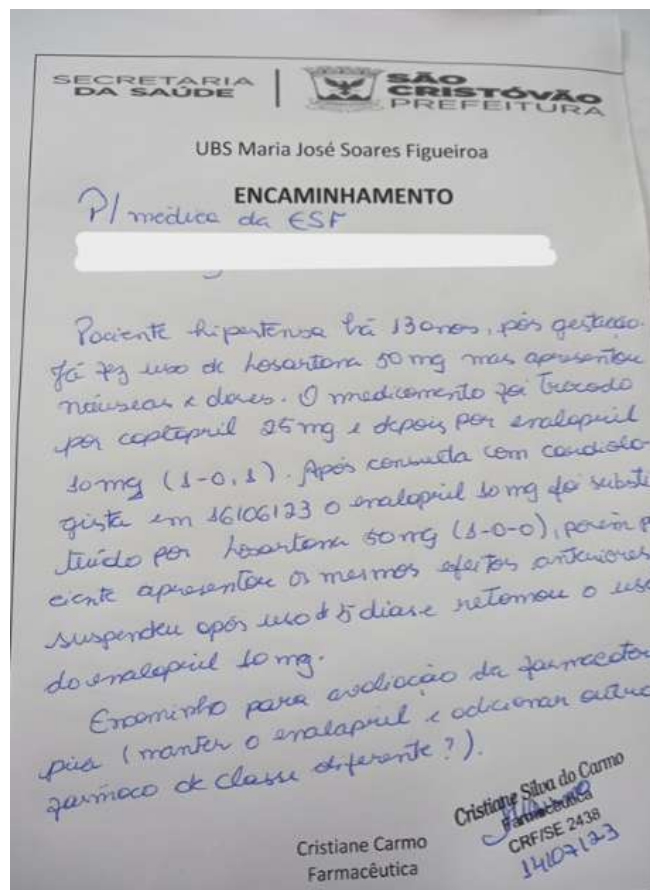 SECRETARIA
DA SAÚDE
SÃO
CRISTÓVÃO
PREFEITURA
UBS Maria José Soares Figueiroa
ENCAMINHAMENTO
P/ médica da ESF
Paciente hipertensa há 13 anos, pós gestação.
Já fez uso de Losartana 50 mg mas apresentou
náuseas e dores. O medicamento foi trocado
por captopril 25 mg e depois por enalapril
10 mg (1-0,1). Após consulta com cardiolo-
gista em 16/06/23 o enalapril 10 mg foi substi
tuído por Losartana 50 mg (1-0-0), porém p
ciente apresentou os mesmos efeitos anteriores
suspendeu após uso 5 dias e retomou o uso
do enalapril 10 mg.
Encaminho para avaliação da farmacoter
pia (manter o enalapril e adicionar outro
fármaco de classe diferente?).
Cristiane Silva do Carmo
Farmacêutica
CRF/SE 2438
14/07/23
Cristiane Carmo
Farmacêutica